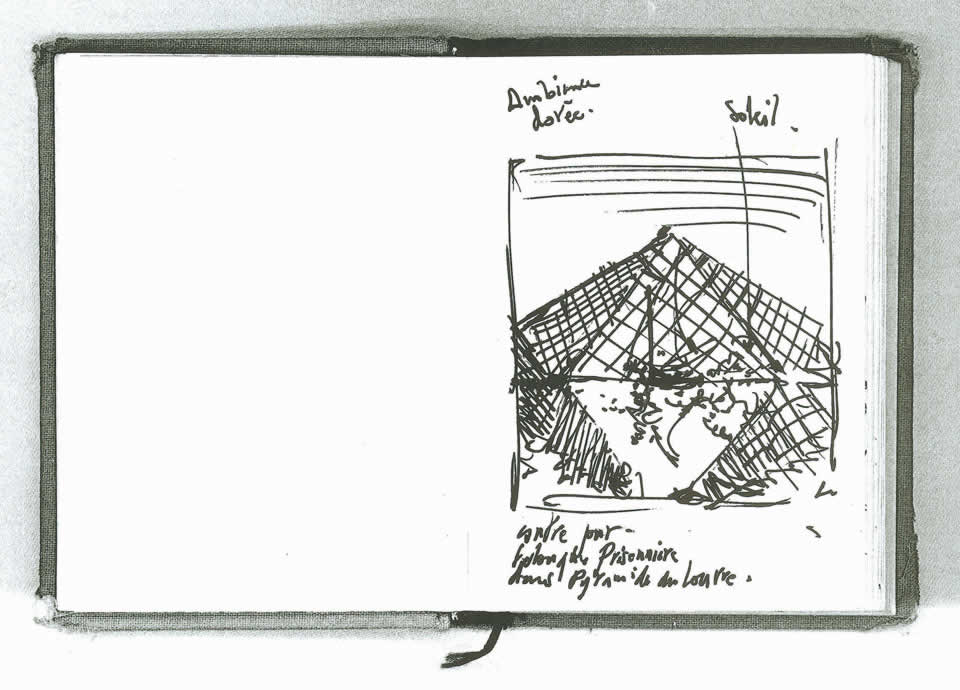 Ambiance
dorée.
Soleil.
contre jour -
Prisonnière
dans Pyramide du Louvre.